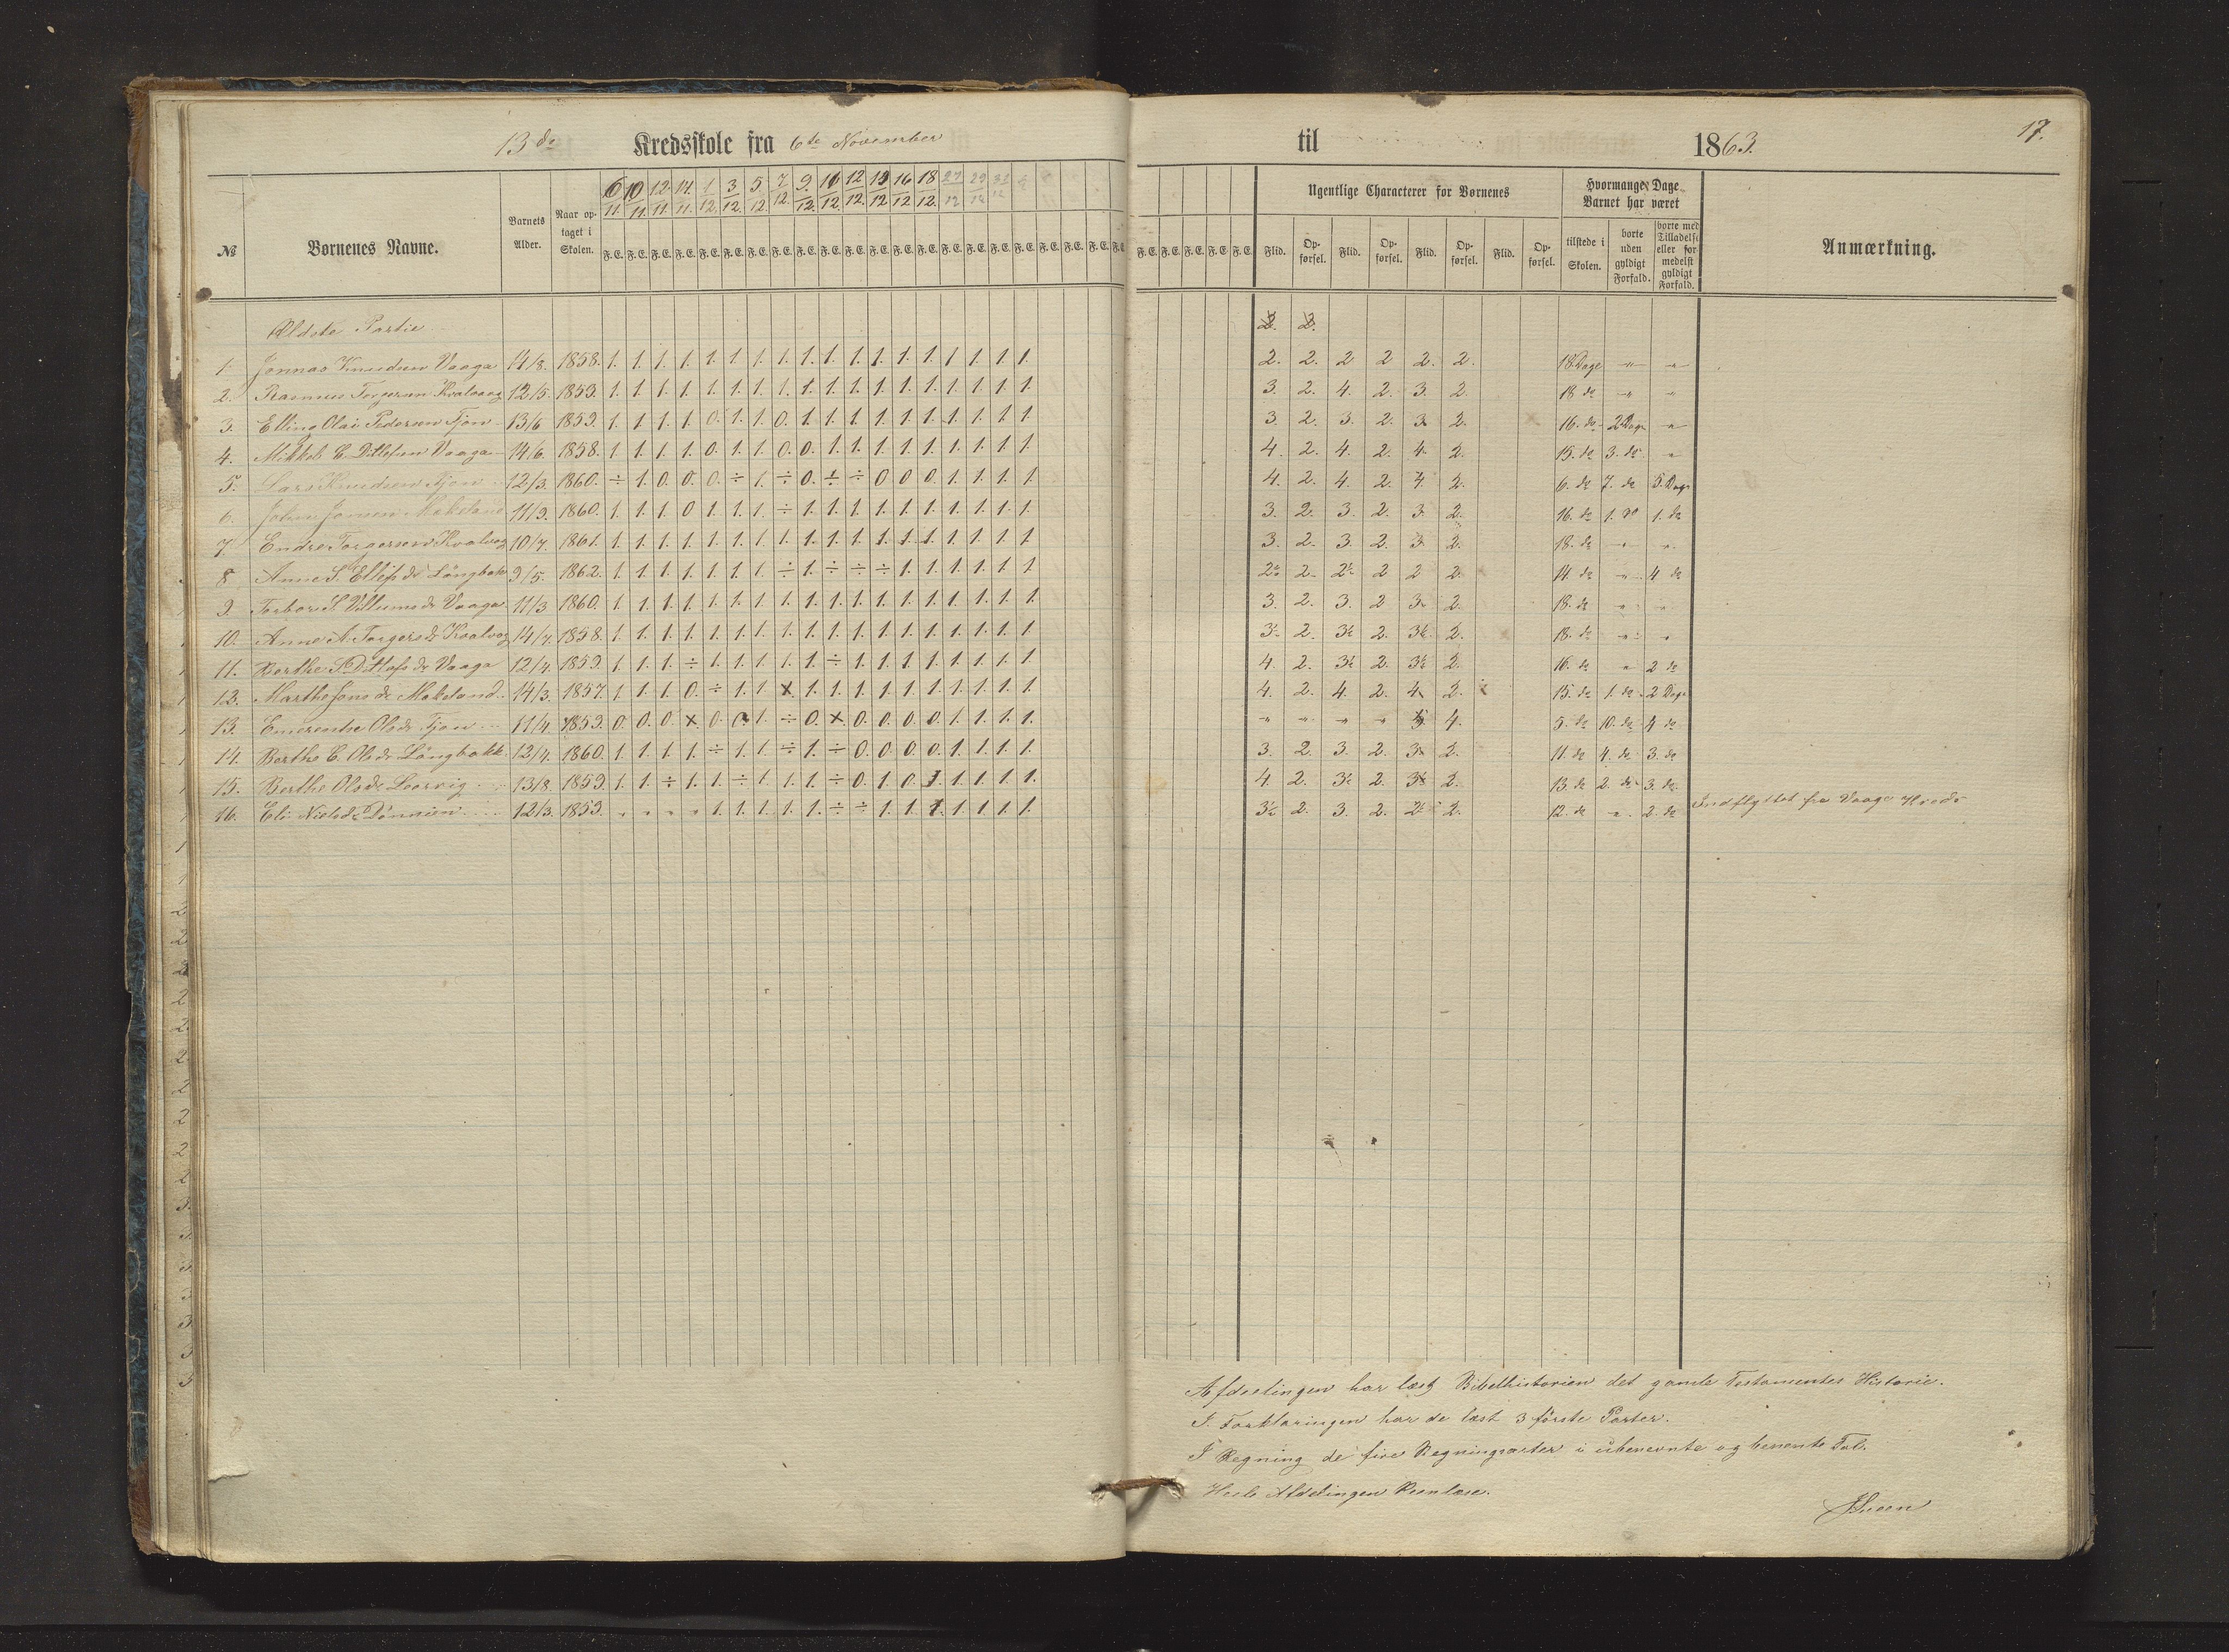 13de Kredsskole fra 6te November til 1863. 17.
№ Børnenes Navne. Barnets Alder. Naar optaget i Skolen. Ugentlige Characterer for Børnenes Hvormange Dage Barnet har været Anmærkning.
6/11. 10/11. 12/11. 14/11. 1/12. 3/12. 5/12. 7/12. 9/12. 10/12. 12/12. 15/12 16/12 18/12. 27/12 29/12
F.E. F.E. F.E. F.E. F.E. F.E. F.E. F.E. F.E. F.E. F.E. F.E. F.E. F.E. F.E. F.E. F.E. F.E. F.E. F.E. F.E. F.E. F.E. F.E. F.E. F.E. F.E.
Flid. Opførsel. Flid. Opførsel. Flid. Opførsel. Flid. Opførsel. tilstede i Skolen. borte uden gyldigt Forfald. borte med Tilladelse eller formedelst gyldigt Forfald.
Ældste Partie
1. Jonnas Knudsen Vaaga 14/8. 1858. 1. 1. 1. 1. 1. 1. 1. 1. 1. 1. 1. 1. 1. 1. 1 1. 1. 1. 2. 2. 2 2 2. 2. 18 Dage " "
2. Rasmus Torgersen Kvalvaag 12/5. 1859. 1. 1. 1. 1. 1. 1. 1. 1. 1. 1. 1. 1. 1. 1. 1. 1. 1. 1 3. 2. 4. 2. 3. 2. 18 do " "
3. Elling Olai Pedersen Tjøn 13/6 1859. 1. 1. 1. 1. 0. 1. 1. 0. 1. 1. 1. 1. 1. 1. 1. 1. 1. 1 3. 2. 3. 2. 3. 2. 16. do 2 Dage "
4. Mikkel E. Ditlefsen Vaaga 14/6. 1858. 1. 1. 1. 1. 0. 1. 1. 0. 0. 1. 1. 1. 1. 1. 1. 1. 1. 1 4. 2. 4. 2. 4. 2. 15. do 3. do "
5. Lars Knudsen Tjøn 12/3. 1860. ÷ 1. 0. 0. 0. ÷ 1. ÷ 0. ÷ ÷ 0 0 0. 1. 1. 1. 1 4. 2. 4. 2. 4. 2. 6. do 7. do 5. Dage
6. Johan Jonsen Mokeland 11/9. 1860. 1. 1. 1. 0 1. 1. 1. ÷ 1. 1. 1. 1. 1. 1. 1. 1. 1. 1 3. 2. 3. 2. 3. 2. 16. do 1. do 1. do
7. Endre Torgersen Kvalvaag 10/7. 1861. 1. 1. 1. 1. 1. 1. 1. 1. 1. 1. 1. 1. 1. 1. 1. 1. 1. 1 3. 2. 3. 2. 3. 2. 18. do " "
8 Anne S. Ellefsdr Langbak 9/5. 1862. 1. 1. 1. 1. 1. 1. 1. ÷ 1. ÷ ÷ ÷ 1. 1. 1. 1. 1. 1 2. 2½ 2 2 2. 14. do " 4 do
9. Torbore S. Villumsdr Vaaga 11/3 1860. 1. 1. 1. 1. 1. 1. 1. 1. 1. 1. 1. 1. 1. 1. 1. 1. 1. 1 3. 2. 3. 2 3. 2. 18. do " "
10. Anne A. Torgersdr Kvalvog 14/7. 1858. 1. 1. 1. 1. 1. 1. 1. 1. 1. 1. 1. 1. 1. 1. 1. 1. 1. 1 3½ 2. 3½ 2. 3½ 2. 18. do " "
11. Berthe S. Ditlefsdr Vaaga 12/4. 1859. 1. 1. 1. ÷ 1. 1. 1. 1. 1. ÷ 1. 1. 1. 1. 1. 1. 1. 1 4. 2. 3½ 2. 3½ 2. 16. do " 2 do
12. Marthe Jonsdr Mokeland 14/3. 1857. 1. 1. 1. 0. ÷ 1. 1. × 1. 1. 1. 1. 1. 1. 1. 1. 1. 1. 4. 2. 4. 2. 4. 2. 15. do 1. do 2 Dage
13. Emerentse Olsdr Tjøn 11/4. 1859. 0. 0. 0. × 0. 0. 1. ÷ 0. × 0. 0. 0. 0. 1. 1. 1. 1 " " " " 5. 4. 5. do 10. do 4 do
14. Berthe C. Olsdr Langbakk 12/4. 1860. 1. 1. 1. 1. ÷ 1. 1. ÷ 1. ÷ 0. 0. 0. 0. 1. 1. 1. 1. 3. 2. 3. 2. 3. 2. 11. do 4. do 3. do
15. Berthe Olsdr Leervig 13/8. 1859. 1. 1. ÷ 1. 1. ÷ 1. 1. 1. ÷ 0. 1. 0. 1. 1. 1. 1. 1. 4. 2. 3½ 2. 3½ 2. 13. do 2. do 3. do
16. Eli Nielsdr 12/3. 1859. " " " " 1. 1. 1. 1. 1. ÷ ÷ 1. 1. 1. 1. 1. 1. 1. 3½ 2. 3. 2. 2½ 2. 12. do " 2. do Indflyttet fra Vaage Kreds
Afdeelingen har læst Bibelhistorien det gamle Testamentes Historie.
I Forklaringen har de læst 3 første Parter.
I Regning de fire Regningsarter i ubenevnte og benevnte Tal.
Hele Afdelingen Reenlæse.
JSveen